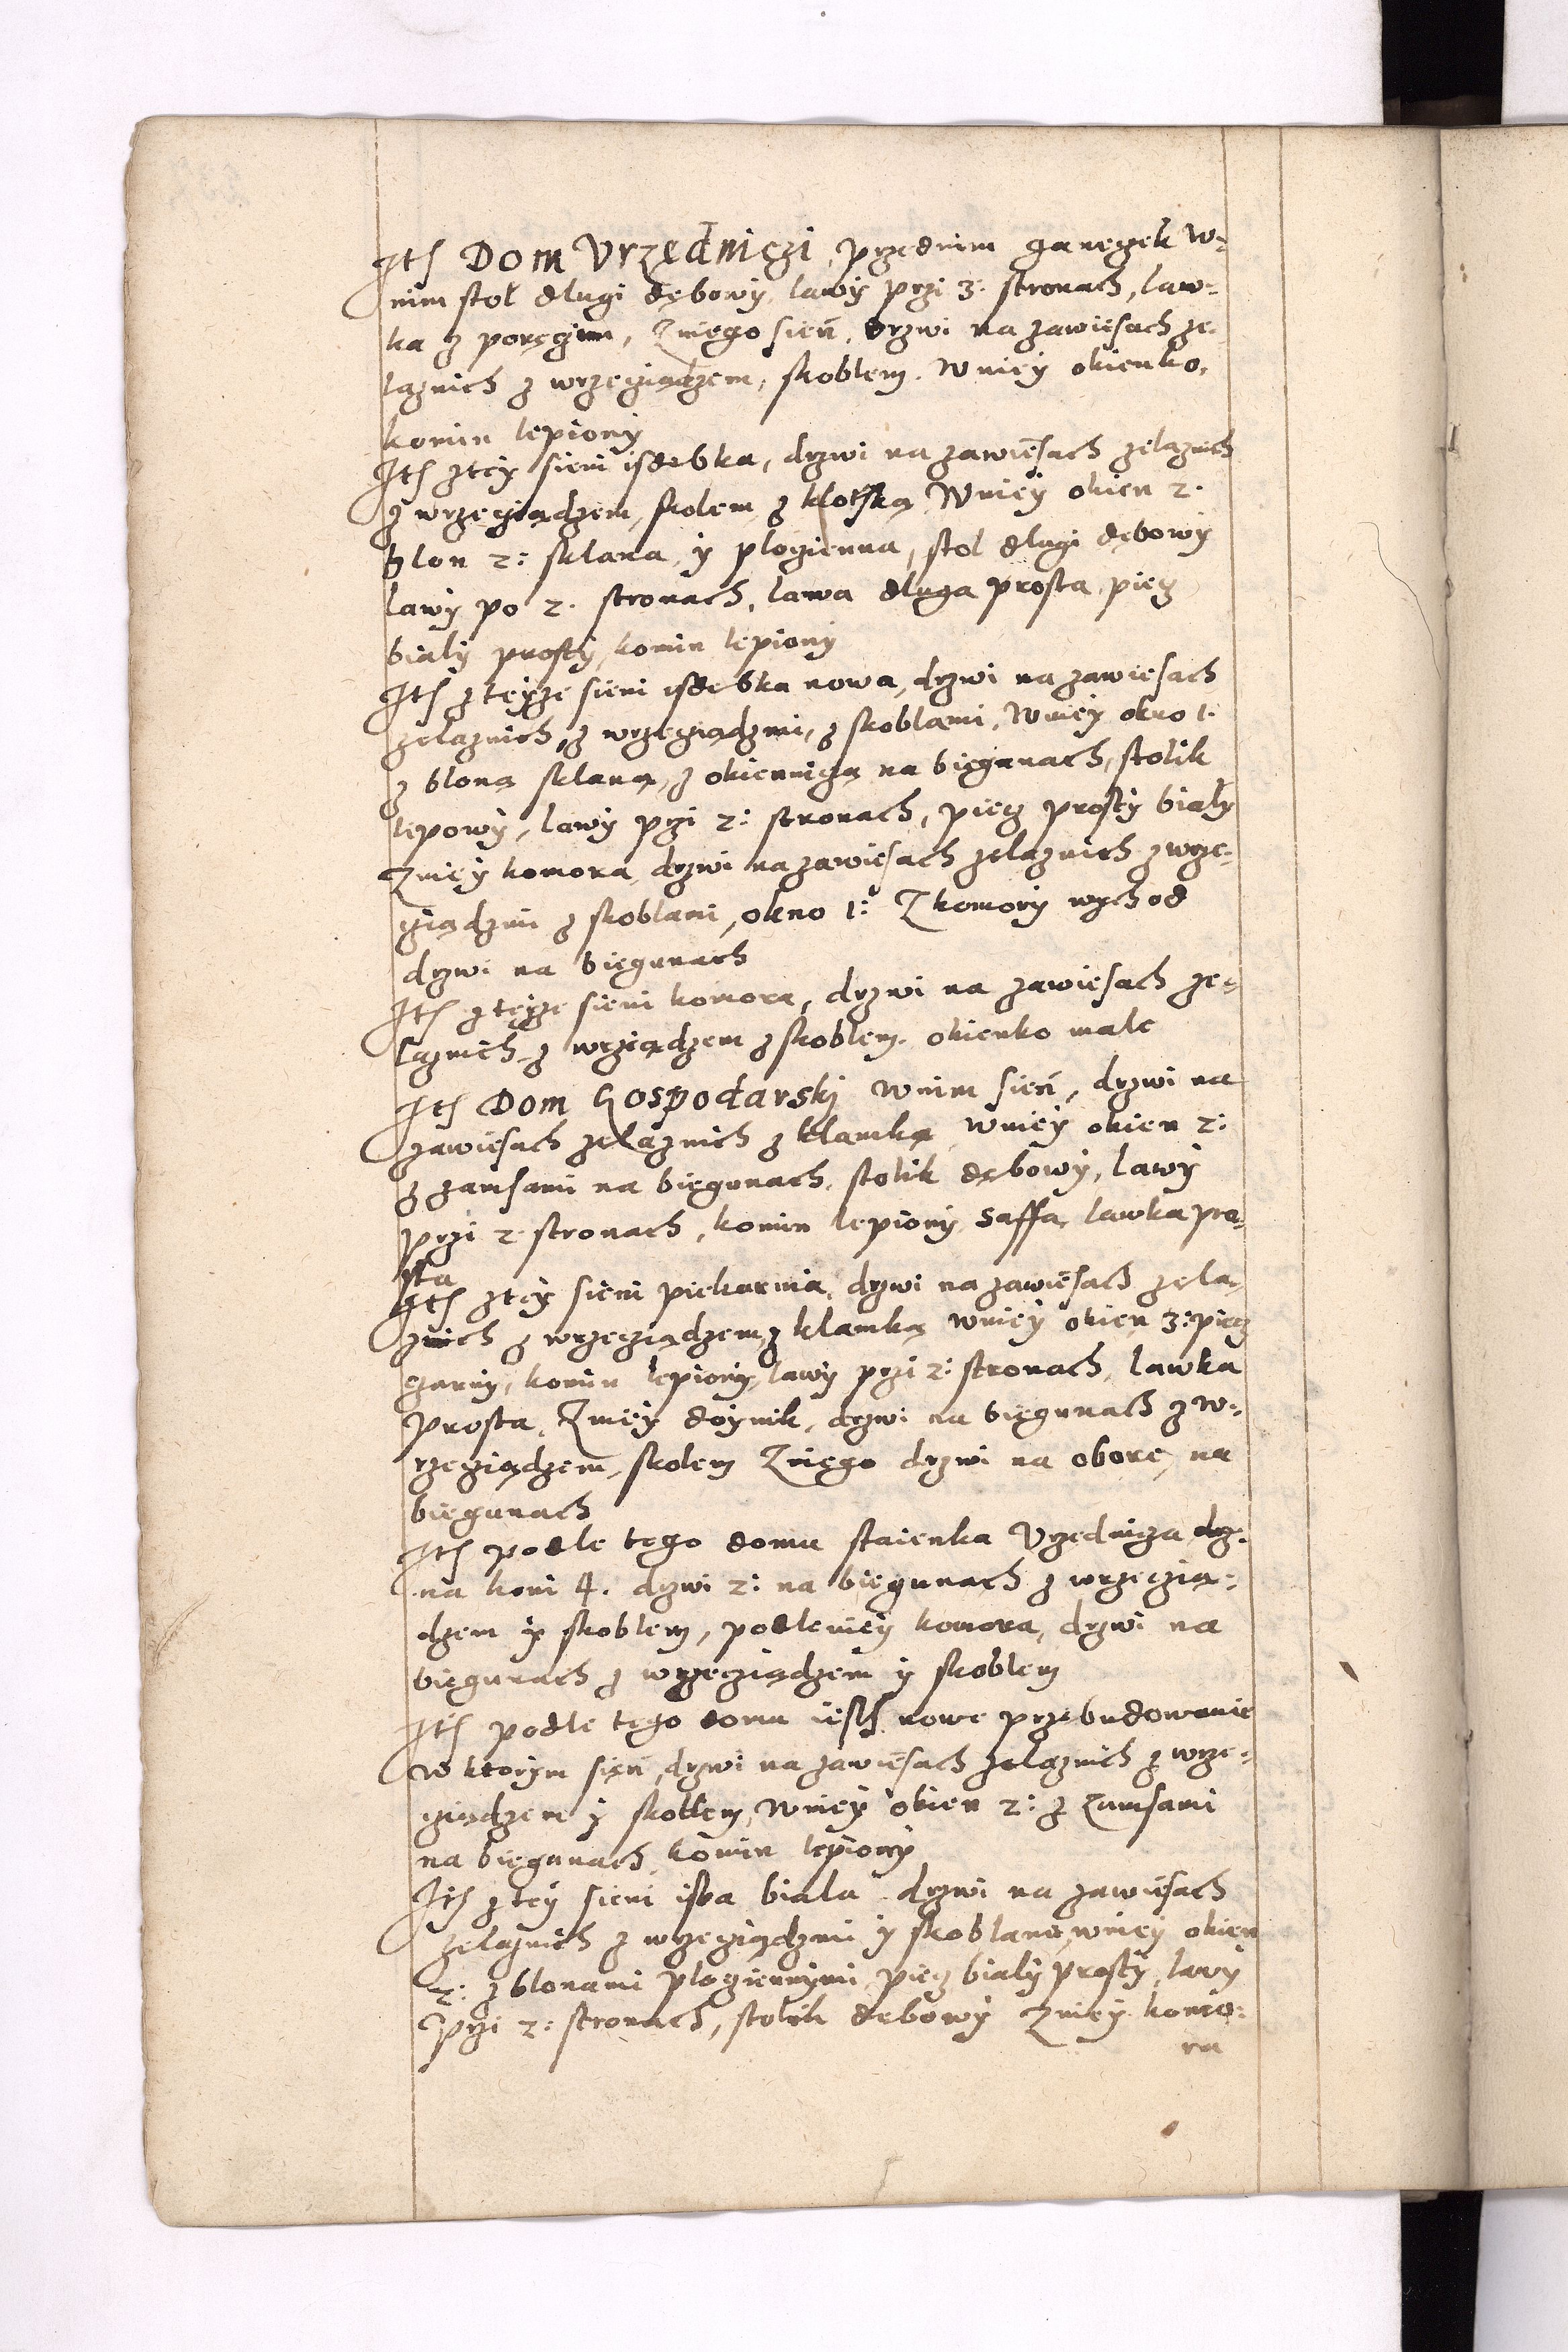 Ith Dom Vrzędniczi, przednim ganeczek w-
nim stoł dlugi dębowy, lawy przi 3: stronach, law-
ka z poręczim, Zniego sień, drzwi na zawiesach że-
laznich z wrzeciądzem, skoblem. W niey okienko,
komin lepiony
Ith ztey sieni isdebka, drzwi na zawiesach zelaznich
z wrzeciądzem, skolem, z klotką, W niey okien 2.
blon 2: sklana, y plocienna, stol dlugi dębowy
lawy po 2. stronach, lawa dluga prosta, piecz
bialy prosty, komin lepiony
Ith z teyze sieni isdebka nowa, drzwi na zawiesach
zelaznich, z wrzeciądzmi, z skoblami, W niey okno 1.
z bloną sklaną, z okiennicą na biegunach, stolik
lepowy, lawy pzi 2: stronach, piecz prosty bialy
Zniey komora, drzwi na zawiesach zelaznich z wrze-
ciądzmi z skoblami, okno 1: Z komory wychod
drzwi na biegunach
Ith z teyze sieni komora, drzwi na zawiesach ze-
laznich z wrzeciądzem z skoblem. okienko male
Ith Dom Gospodarski w nim sień, drzwi na
zawiesach zelaznich z klamką w niey okien 2:
z zamsami na biegunach, stolik dębowy, lawy
przi 2 stronach, komin lepiony, saffa, lawka pro-
sta
Ith ztey sieni piekarnia, drzwi na zawiesach zela-
znich z wrzeciądzem, z klamką w niey okien 3: piecz
czarny, komin lepiony, lawy przi 2: stronach, lawka
prosta, Zniey doynik, drzwi na biegunach z w-
rzeciądzem, skolem Zniego drzwi na oborę, na
biegunach
Ith podle tego domu staienka Vrzednicza
na koni 4. drzwi 2: na biegunach z wrzecią-
dzem y skoblem, podleniey komora, drzwi na
biegunach z wrzeciądzem y skoblem
Ith podle tego domu iest nowe przebudowanie
w ktorym sień, drzwi na zawiesach zelaznich z wrze-
ciądzem y skoblem, w niey okien 2: z zamsami
na biegunach, komin lepiony
Ith z tey sieni isba biala drzwi na zawiesach
zelaznich z wrzeciądzmi y skoblami, w niey okien
2: z blonami plociennymi, piecz bialy prosty, lawy
przi 2: stronach, stolik dębowy Zniey komo-
ra